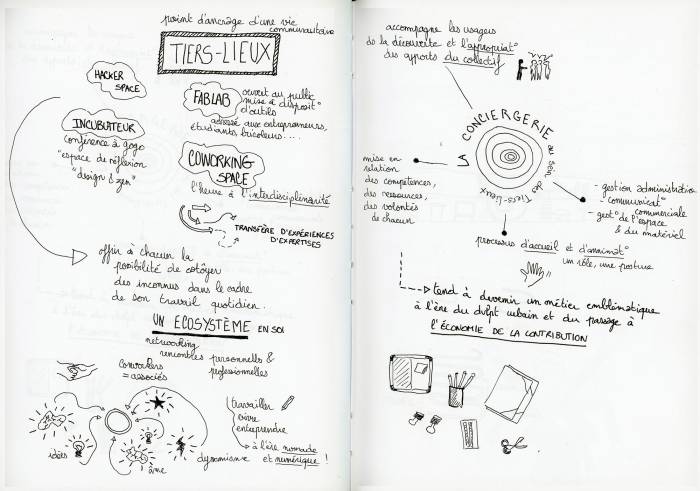 point d'ancrage d'une vie
communautaire
TIERS-LIEUX
HACKER
SPACE
FABLAB
ouvert au public
mise à disposit°
d'outils
adressé aux entrepreneurs,
étudiants, bricoleurs....
INCUBATEUR
conférence à gogo
"espace de réflexion
"design & zen"
COWORKING
SPACE
l'heure à l'interdisciplinarité
TRANSFÈRE D'EXPÉRIENCES
D'EXPERTISES
offrir à chacun la
possibilité de cotoyer
des inconnus dans le cadre
de son travail quotidien.
UN ECOSYSTÈME EN SOI
networking
rencontres personnells &
professionelles
coworkers
= associés
travailler
vivre
entreprendre
à l'ère nomade
et numérique !
idées
âme
dynamisme
accompagne les usages
de la découverte et l'appropriat°
des apports du collectif
CONCIERGERIE au sein des Tiers-Lieux
mise en
relation
des compétences,
des ressources,
des volontés
de chacun
- gestion administration
- communicat°
commerciale
- gest° de l'espace
& du matériel
processus d'accueil et d'animat°
un rôle, une posture
tend à devenir un métier emblématique
à l'ère du dvlpt urbain et du passage à
l'ÉCONOMIE DE LA CONTRIBUTION